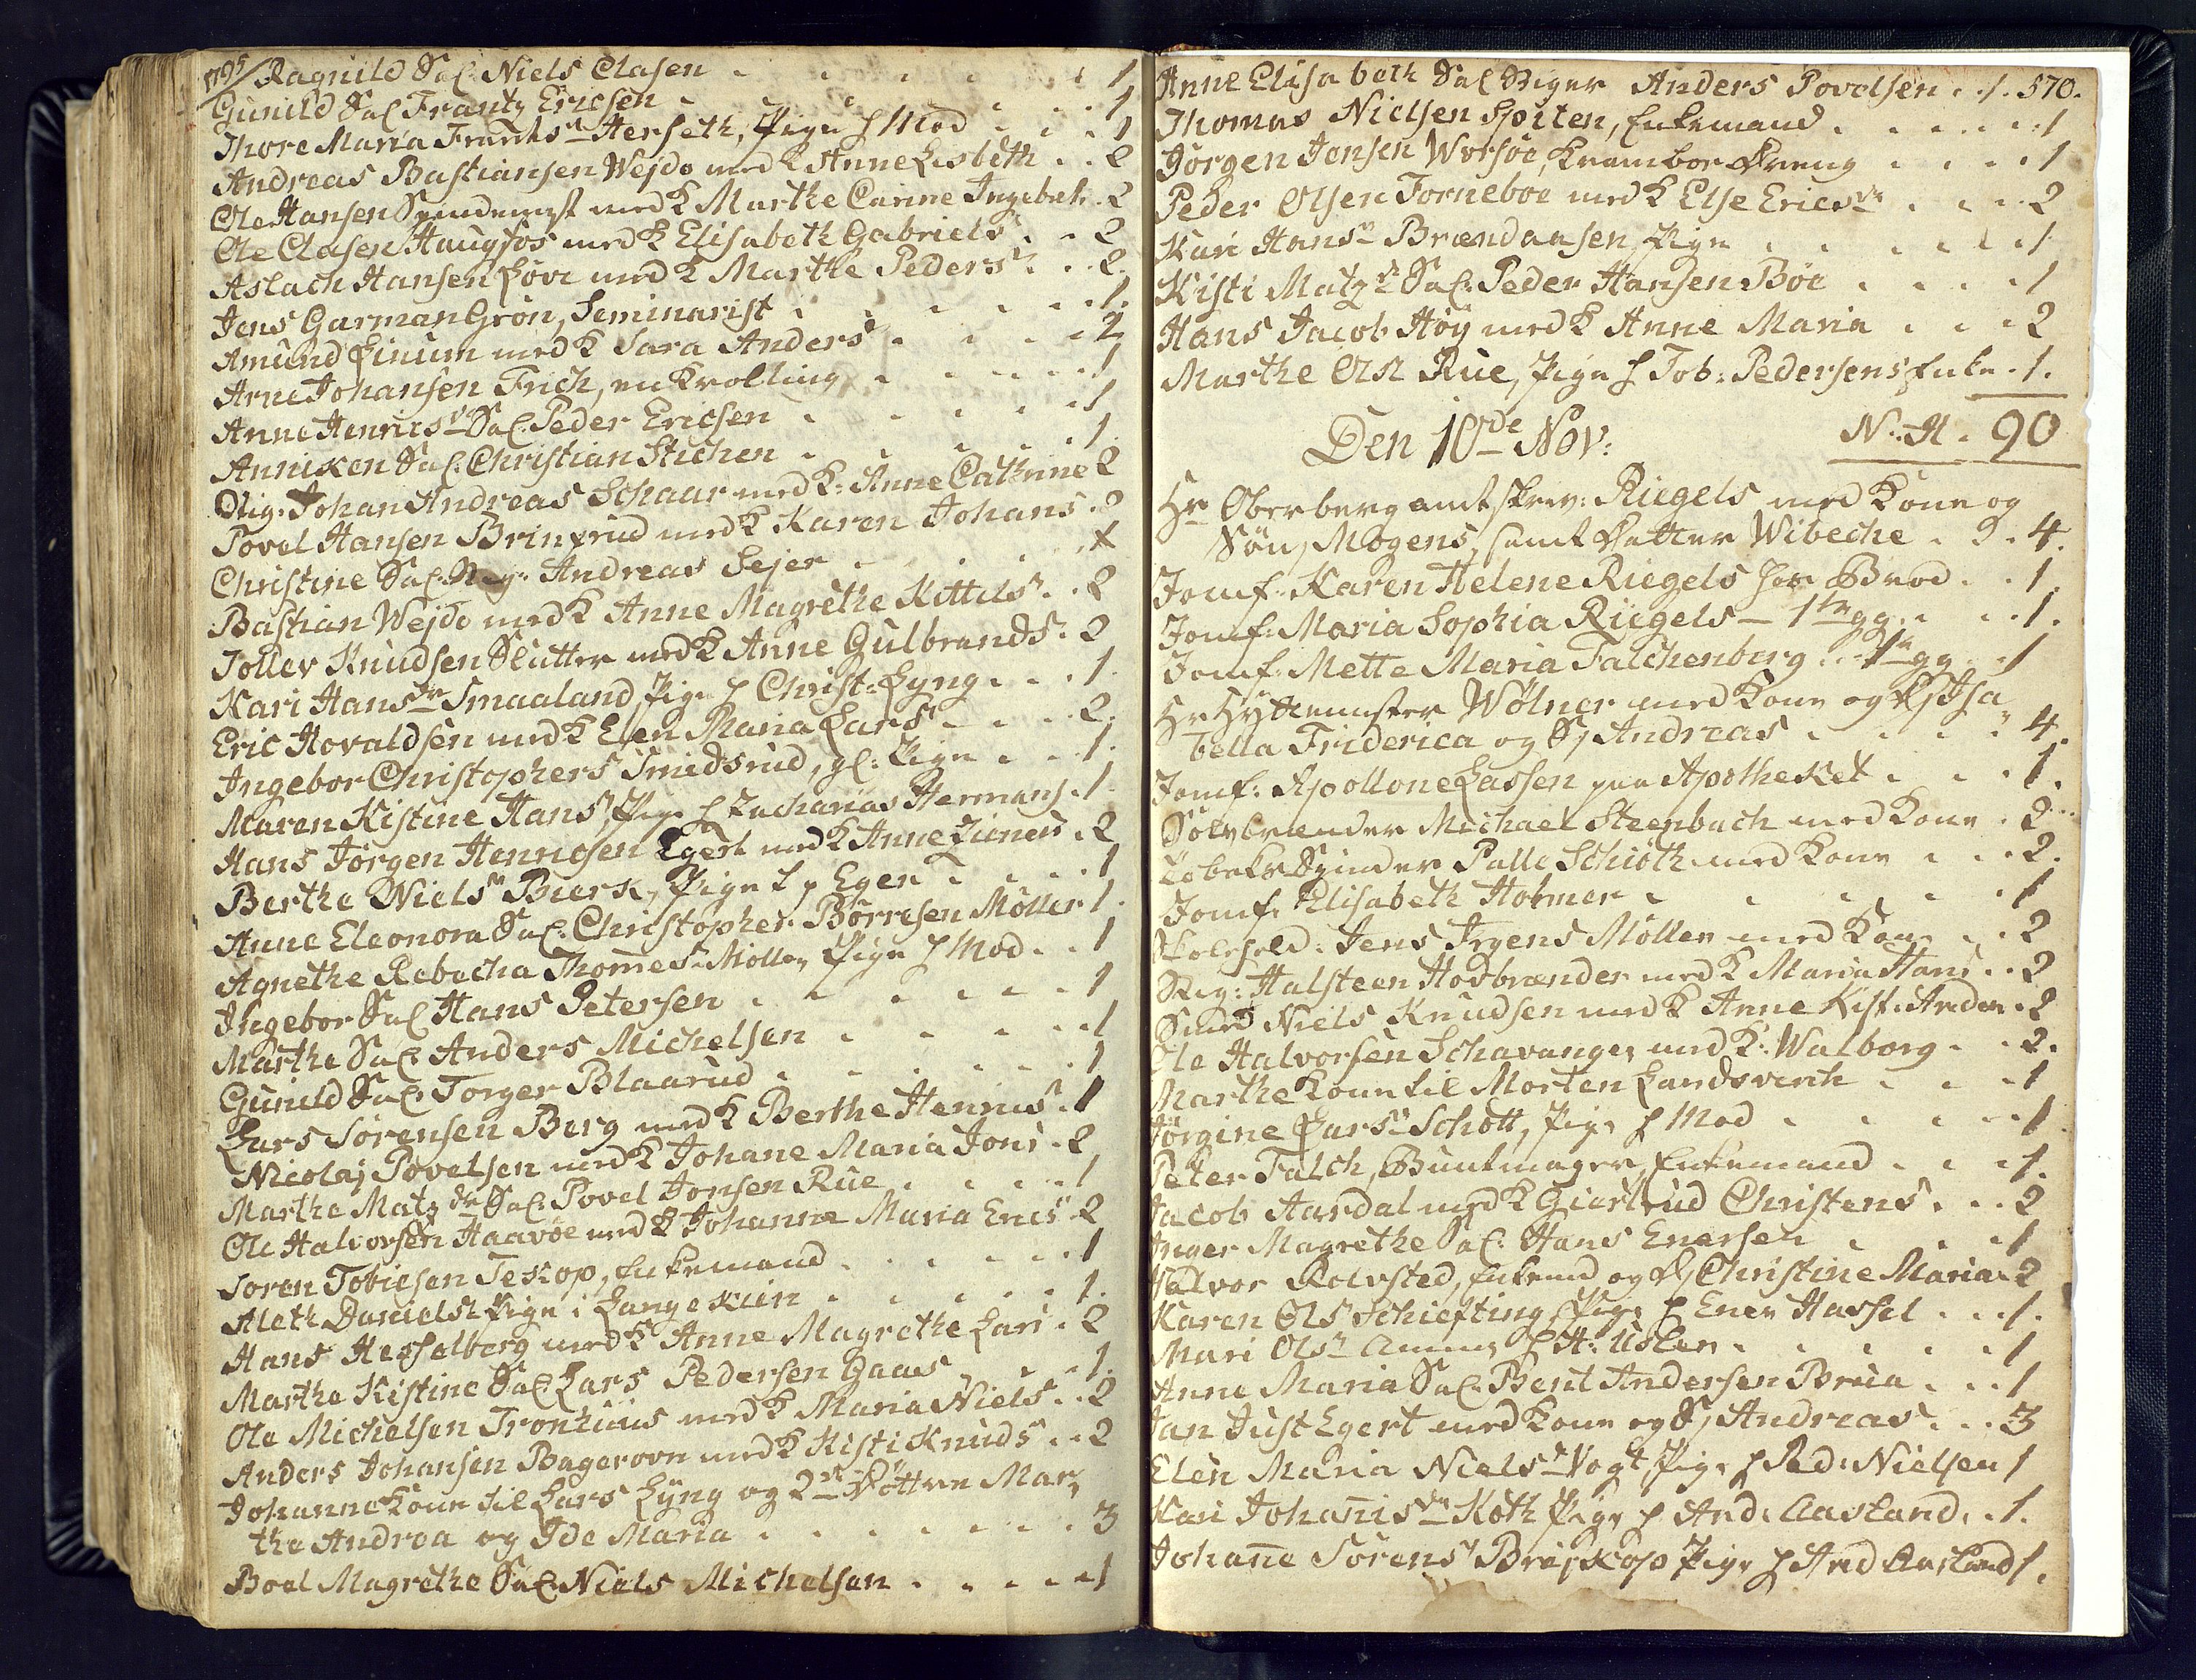 1795
Ragnild Sal: Niels Clasen . . . . . 1
Gunild Sal Frantz Ericsen . . . . . 1
Thore Maria Frantsdr Herseth, Pige h Mod . . . 1
Andreas Bastiansen Wejdo med K Anne Lisbeth . . 2
Ole Hansen med K Marthe Carine Ingebrets . 2
Ole Clasen Haugfos med K Elisabeth Gabriels . . 2
Aslach Hansen Løve med K Marthe Peders . . 2
Jens Garman Grøn, Seminarist . . . . . 1.
Amund Linum med K Sara Anders . . . . 2
Arne Johansen Frich, en Krølling . . . . . 1
Anne Henrics Sal: Peder Ericsen . . . . . 1
Anniken Sal: Christian Stichen . . . . . 1
Stig: Johan Andreas Schaar med K: Anne Cathrine 2
Povel Hansen Brinxrud med K Karen Johans . 2
Christine Sal: Andreas Sejer . . . . . x
Bastian Wejdo med K Anne Magrethe Kittils . . 2
Tollev Knudsen Slutter med K Anne Gulbrands . 2
Kari Hansdr Smaaland, Pige h Christ: Lyng . . . 1
Eric Hovaldsen med K Elen Maria Lars . . . 2.
Ingebor Christophers Smidsrud, gl: Pige . . . 1.
Maren Kistine Hans, Pige h Zacharias Hermans . 1
Hans Jørgen Henricsen Egert med K Anne . 2
Berthe Niels Bierk, Pige f p Eger . . . . 1
Anne Eleonora Sal: Christopher Børresen Møller 1.
Agnethe Rebecha Thomes Møller, Pige h Mod . . 1
Ingebor Sal Hans Petersen . . . . . . 1
Marthe Sal Anders Michelsen . . . . . 1
Gunild Sal: Torger Blaarud . . . . . . 1
Lars Sørensen Berg med K Berthe Henrics . 1
Nicolaj Povelsen med K Johane Maria Jons . 2
Marthe Matzdr Sal: Povel Jonsen Rue . . . . 1
Ole Halvorsen Haavøe med K Johanna Maria Erics 2
Soren Tobiesen Teskop, Enkemand . . . . . 1
Aleth Daniels Pige i Langekiin . . . . . 1.
Hans Hesselberg med K Anne Magrethe Lars . 2
Marthe Kistine Sal Lars Pedersen Gaas . . 1.
Ole Michelsen Tronhuus med K Maria Niels . . 2
Anders Johansen Bagerovn med K Kisti Knuds . . 2
Johanne Kone til Lars Lyng og 2de Døttre Mar-
the Andrea og Ide Maria . . . . . . . 3
Boel Magrethe Sal: Niels Michelsen . . . . . 1
Anne Elisabeth Sal Stiger Anders Povelsen . . 1. 570.
Thomas Nielsen Spiten, Enkemand . . . . . 1
Jørgen Jensen Worsøe, Krambor Dreng . . . . 1
Peder Olsen Forneboe med K Else Ericsdr . . . 2
Kari Hans Brændaasen Pige . . . . . 1
Kisti Matzdr Sal: Peder Hansen Bøe . . . . 1
Hans Jacob Høy med K Anne Maria . . . 2
Marthe Ols Rue, Pige h Tob: Pedersens Enke . 1.
Den 10de Nov: N: A . 90
Hr Oberbergamtskrev: Riegels med Kone og
Søn, Mogens, samt Datter Wibeche . . 4.
Jomf: Karen Helene Riegels hos Brod . . 1
Jomf: Maria Sophia Riegels — 1te gg . . . 1.
Jomf: Mette Maria Falchenberg . . 1te gg . 1
Hr Hyttemester Wølner med Kone og D Isa-
bella Friderica og S Andreas . . . . 4.
Jomf: Apollone Lassen paa Apotheket . . . 1.
Sølvbrænder Michael Steenbuch med Kone . 2
Tobaks Spinder Palle Schiøth med Kone . . . 2.
Jomf: Elisabeth Holmer . . . . . 1
Skolehold: Jens Irgens Møller med Kone . . 2
Stig: Halsteen Hodbrænder med K Maria Hans . . 2
Smed Niels Knudsen med K Anne Kist: Anders . 2
Ole Halvorsen Schavanger med K: Walborg . . 2.
Marthe Kone til Morten Landsverch . . . 1
Jørgine Lars Schott, Pige h Mod . . . . 1
Peter Falch, Buntmager, Enkemand . . . 1.
Jacob Aardal med K Giertrud Christens . . . 2
Inger Magrethe Sal: Hans Enersen . . . . 1
Halvor Rolvsted, Enkemd og D Christine Maria . 2
Karen Ols Schiefting, Pige h Ener Hassel . . . 1.
Mari Olsdr Amme h H: Uslen . . . . . 1
Anne Maria Sal: Bent Andersen Brua . . . 1
Jan Just Egert med Kone og S Andreas . . . 3
Elen Maria Niels Vogt, Pige h Ped: Nielsen 1
Kari Johannisdr Koth Pige h And: Aasland . . 1.
Johanne Sørens Brijskop Pige h And Aasland 1.